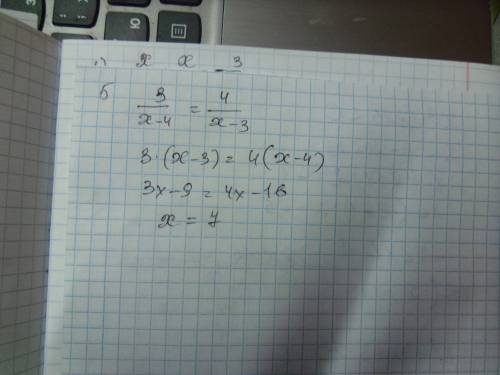 x x 3
б 3/(x-4) = 4/(x-3)
3·(x-3) = 4(x-4)
3x-9 = 4x-16
x = 7